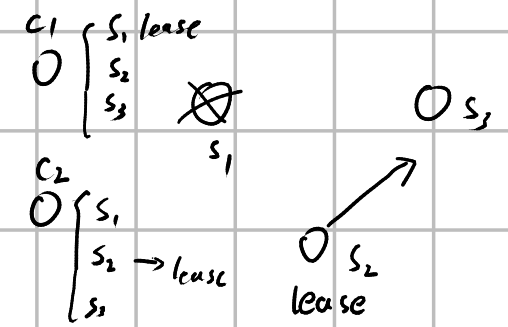 C1
S1 lease
S2
S3
S1
S3
C2
S1
S2 → lease
S3
S2
lease